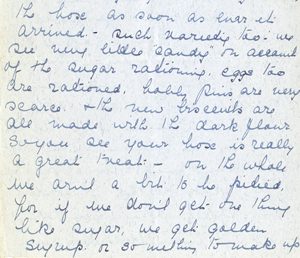 the hose as soon as ever it
arrived. - such variety too. we
see very little "candy" on account
of the sugar rationing, eggs too
are rationed, bobby pins are very
scarce. & the new biscuits are
all made with the dark flour
so you see your hose is really
a great treat - on the whole
we arn't a bit to be pitied,
for if we don't get one thing
like sugar, we get golden
syrup. or something to make up